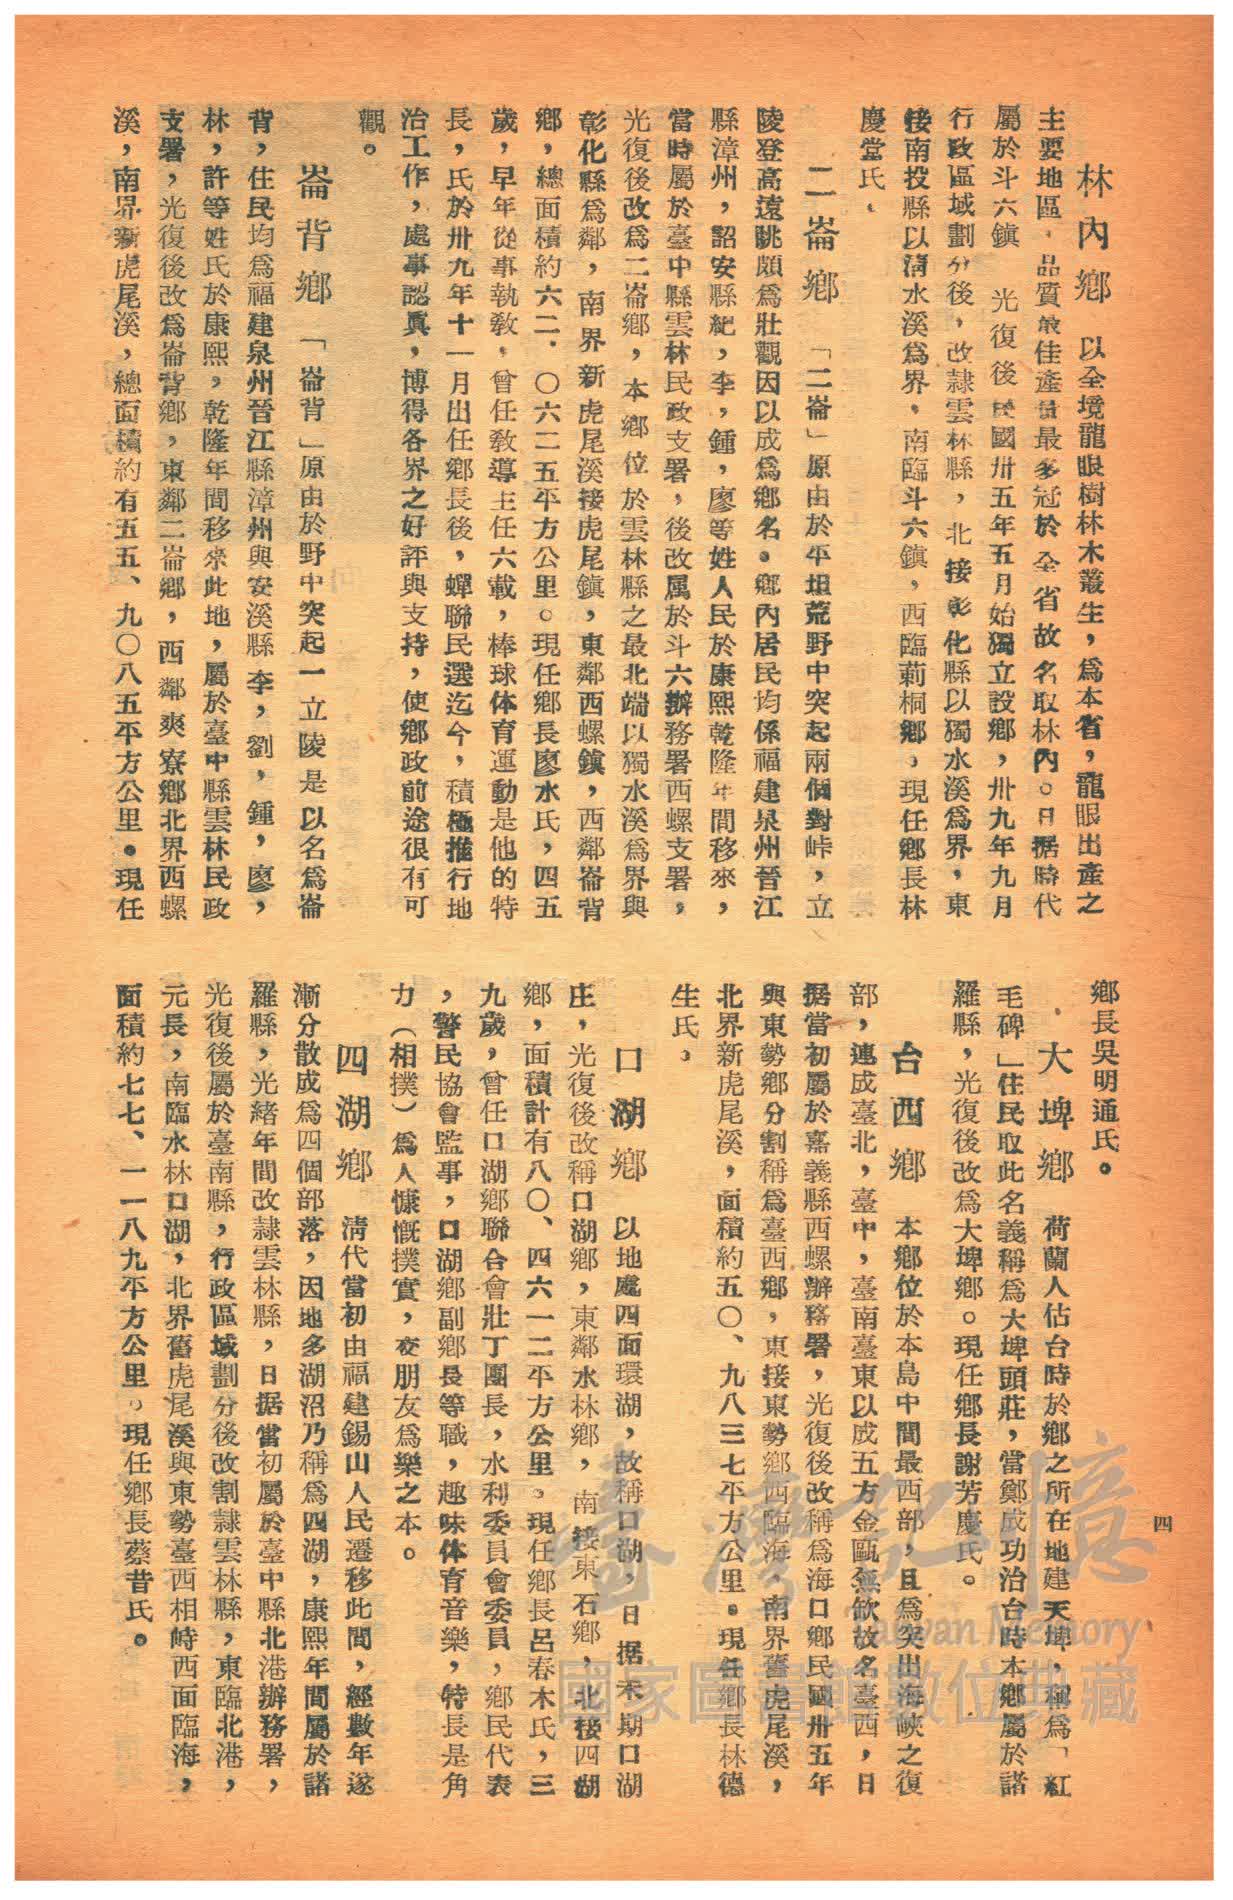 林內鄉　以全境龍眼樹林木叢生，為本省，龍眼出產之
主要地區，品質最佳產量最多冠於全省故名取林內。日据時代
屬於斗六鎮　光復後民國卅五年五月始獨立設鄉，卅九年九月
行政區域劃分後，改隸雲林縣，北接彰化縣以獨水溪為界，東
接南投縣以清水溪為界，南臨斗六鎮，西臨莿桐鄉，現任鄉長林
慶堂氏，
二崙鄉　「二崙」原由於平坦荒野中突起兩個對峙，立
陵登高遠眺頗為壯觀因以成為鄉名。鄉內居民均係福建泉州晉江
縣漳州，詔安縣紀，李，鍾，廖等姓人民於康熙乾隆年間移來，
當時屬於臺中縣雲林民政支署，後改属於斗六辦務署西螺支署，
光復後改為二崙鄉，本鄉位於雲林縣之最北端以獨水溪為界與
彰化縣為鄰，南界新虎尾溪接虎尾鎮，東鄰西螺鎮，西鄰崙背
鄉，總面積約六二、〇六二五平方公里。現任鄉長廖水氏，四五
歲，早年從事執敎，曾任敎導主任六載，棒球体育運動是他的特
長，氏於卅九年十一月出任鄉長後，蟬聯民選迄今，積極推行地
治工作，處事認眞，博得各界之好評與支持，使鄉政前途很有可
觀。
崙背鄉　「崙背」原由於野中突起一立陵是以名為崙
背，住民均為福建泉州晉江縣漳州與安溪縣李，劉，鍾，廖，
林，許等姓氏於康熙，乾隆年間移來此地，屬於臺中縣雲林民政
支署，光復後改為崙背鄉，東鄰二崙鄉，西鄰爽寮鄉北界西螺
溪，南界新虎尾溪，總面積約有五五、九〇八五平方公里。現任
鄉長吳明通氏。
大埤鄉　荷蘭人佔台時於鄉之所在地建天埤，稱為「紅
毛碑」住民取此名義稱為大埤頭莊，當鄭成功治台時本鄉屬於諸
羅縣，光復後改為大埤鄉。現任鄉長謝芳慶氏。
台西鄉　本鄉位於本島中間最西部，且為突出海峽之復
部，連成臺北，臺中，臺南臺東以成五方金甌無欽故名臺西，日
据當初屬於嘉義縣西螺辦務署，光復後改稱為海口鄉民國卅五年
與東勢鄉分割稱為臺西鄉，東接東勢鄉西臨海，南界舊虎尾溪，
北界新虎尾溪，面積約五〇、九八三七平方公里。現任鄉長林德
生氏，
口湖鄉　以地處四面環湖，故稱口湖，日据末期口湖
庄，光復後改稱口湖鄉，東鄰水林鄉，南接東石鄉，北接四湖
鄉，面積計有八〇、四六一二平方公里。現任鄉長呂春木氏，三
九歲，曾任口湖鄉聯合會壯丁團長，水利委員會委員，鄉民代表
，警民協會監事，口湖鄉副鄉長等職，趣味体育音樂，特長是角
力（相撲）為人慷慨撲實，交朋友為樂之本。
四湖鄉　清代當初由福建錫山人民遷移此間，經數年遂
漸分散成為四個部落，因地多湖沼乃稱為四湖，康熙年間屬於諸
羅縣，光緒年間改隸雲林縣，日据當初屬於臺中縣北港辦務署，
光復後屬於臺南縣，行政區域劃分後改割隸雲林縣，東臨北港，
元長，南臨水林口湖，北界舊虎尾溪與東勢臺西相峙西面臨海，
面積約七七、一一八九平方公里。現任鄉長蔡昔氏。
四
臺灣記憶
Taiwan Memory
國家圖書館數位典藏